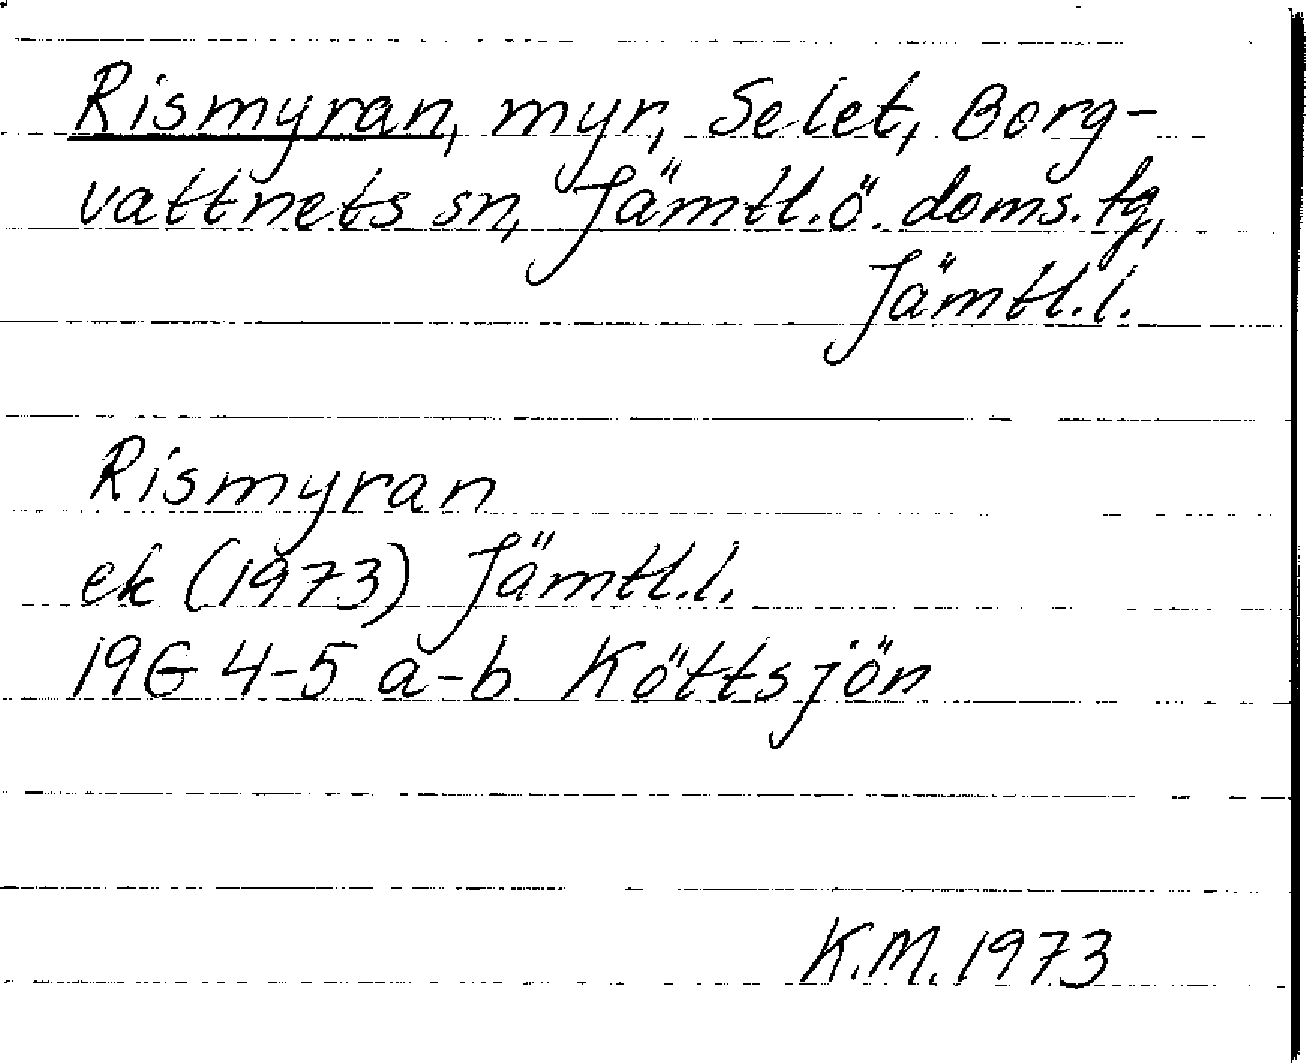 Rismyran, myr, Selet, Borg-
vattnets sn, Jämtl.ö. doms. tg,
Jämtl.l.
Rismyran
ek (1973) Jämtl.l.
19G 4-5 a-b Köttsjön
K.M. 1973